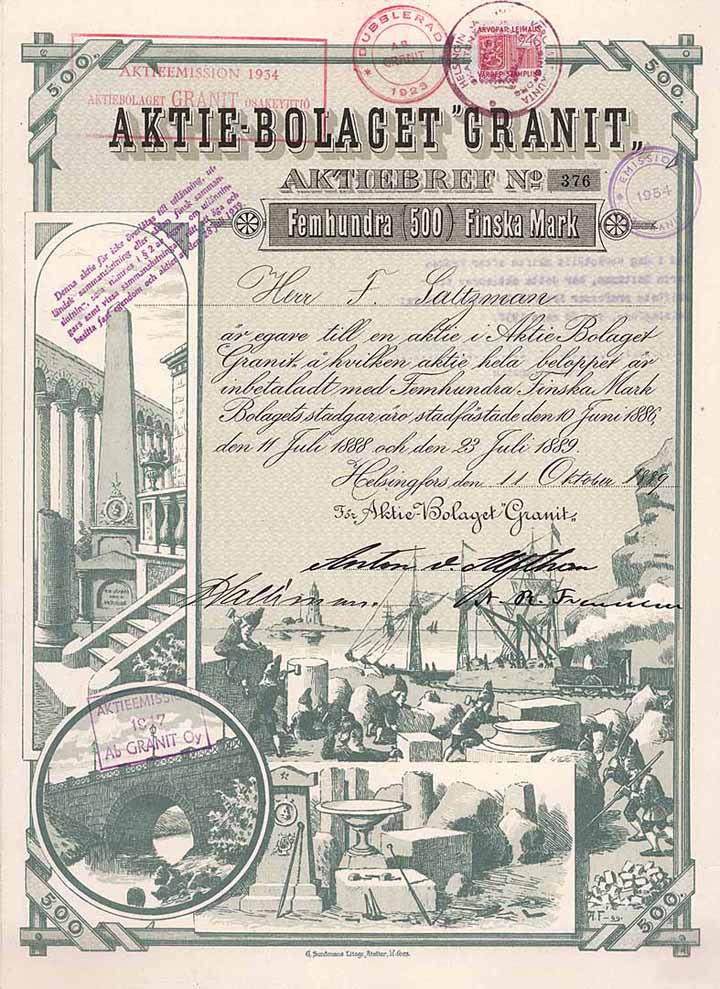 AKTIEEMISSION 1934
AKTIEBOLAGET GRANIT OSAKEYHTIÖ
* DUBBLERAD *
A.B.
GRANIT
1923
HELSINGIN
ARVOPAP. LEIMAUS
VÄRDEP. STÄMPLING
500.
500.
AKTIE-BOLAGET "GRANIT"
AKTIEBREF No 376
EMISSION
1954
GRANIT
Femhundra (500) Finska Mark
Denna aktie får icke överlåtas till utlänning, ut-
ländsk sammanslutning eller sådan finsk samman-
slutning, som nämnes i § 2 av lagen om utlännin-
gars samt vissa sammanslutningars rätt att äga och
besitta fast egendom och aktier av den 28 juli 1939.
Herr F. Saltzman
är egare till en aktie i Aktie Bolaget
Granit, å hvilken aktie hela beloppet är
inbetaladt med Femhundra Finska Mark
Bolagets stadgar äro stadfästade den 10 Juni 1886,
den 11 Juli 1888 och den 23 Juli 1889.
Helsingfors den 11 Oktober 1889
För Aktie-Bolaget "Granit"
AKTIEEMISSION
1947
Ab GRANIT Oy
500
500.
G. Sundmans Litogr. Atelier, H:fors.